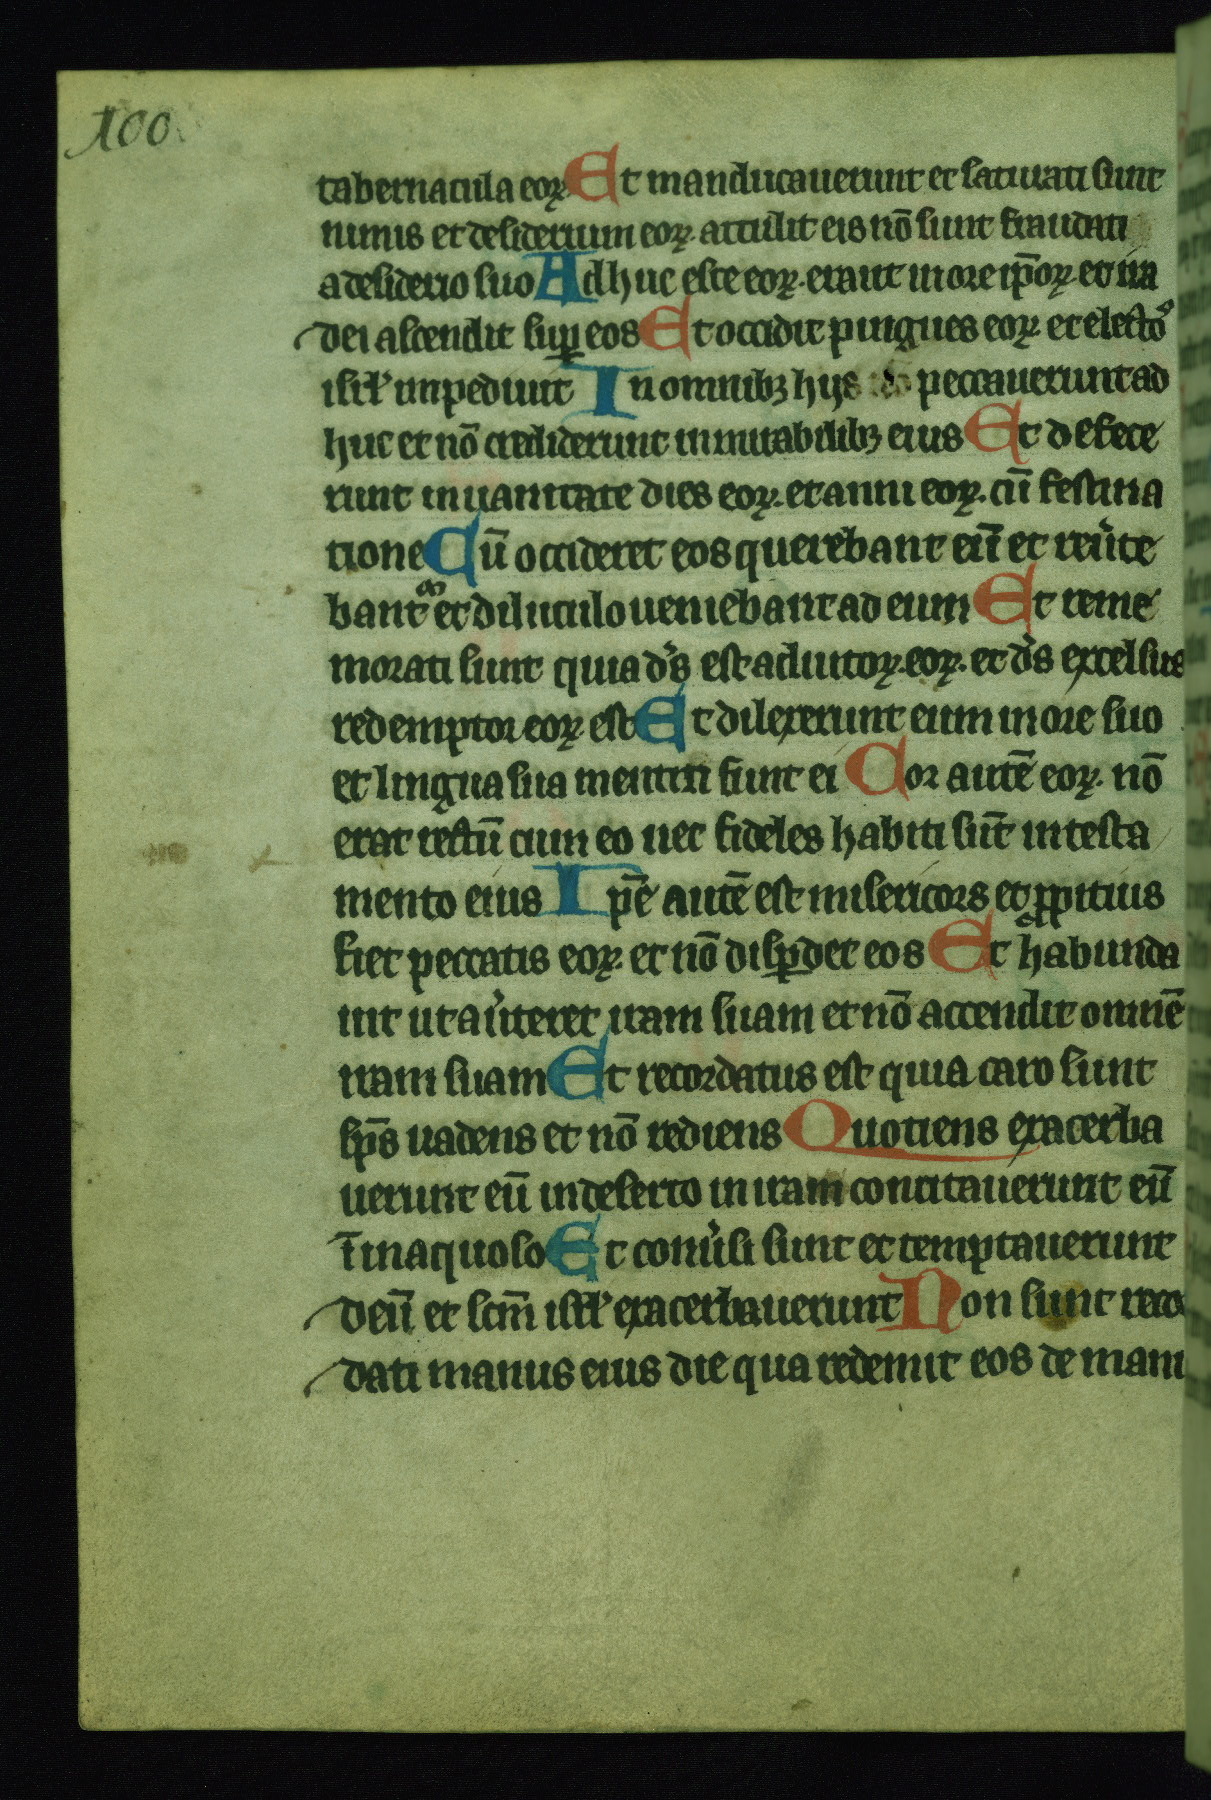 100
tabernacula eoꝝ Et manducauerunt et saturati sunt
nimis et desiderium eoꝝ. attulit eis nō sunt fraudati
a desiderio suo Adhuc esce eoꝝ. erant in ore ip̄oꝝ et ira
dei ascendit suꝑ eos Et occidit pingues eoꝝ et electoꝰ
isrl̓ impediuit In omnibꝫ hijs peccauerunt ad
huc et nō crediderunt in mirabilibꝫ eius Et defece
runt in uanitate dies eoꝝ. et anni eoꝝ. cū festina
tione Cū occideret eos querebant eū et reu̓te
bantᷣ et diluculo ueniebant ad eum Et reme
morati sunt quia d̓s est adiutoꝝ. eoꝝ. et d̓s excelsus
redemptor eoꝝ est Et dilexerunt eum in ore suo
et lingua sua mentiti sunt ei Cor autē eoꝝ. nō
erat rectū cum eo nec fideles habiti sūt in testa
mento eius Ip̄e autē est misericors et ꝓpitius
fiet peccatis eoꝝ. et nō disꝑdet eos Et habunda
uit ut au̓teret iram suam et nō accendit omnē
iram suam Et recordatus est quia caro sunt
sp̄s uadens et nō rediens Quotiens exacerba
uerunt eū in deserto in iram concitauerunt eū
ī inaquoso Et conu̓si sunt et temptauerunt
deū et scm̄ isrl̓ exacerbauerunt Non sunt recor
dati manus eius die qua redemit eos de manu